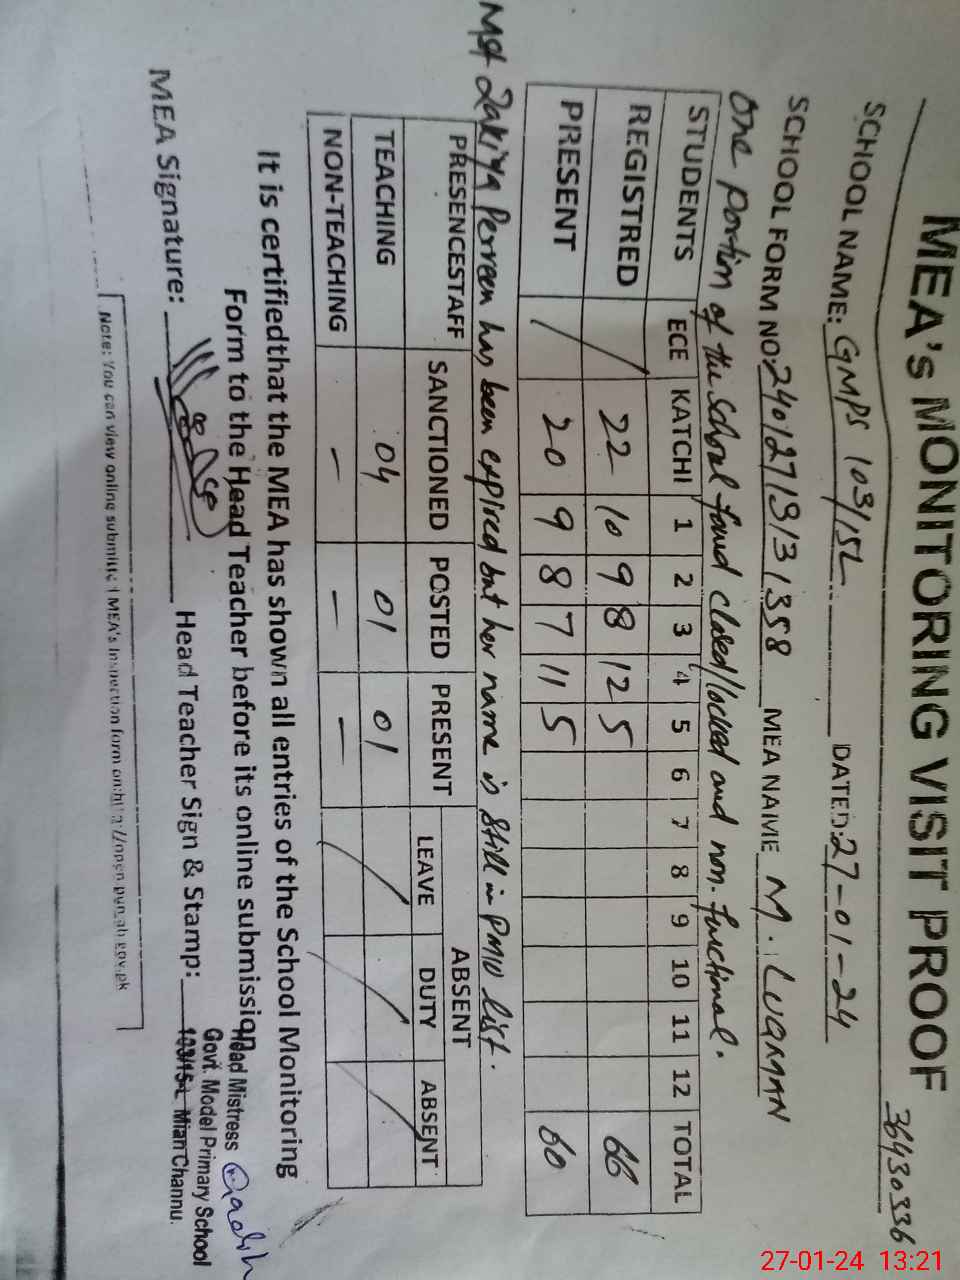 MEA's MONITORING VISIT PROOF
36430336
SCHOOL NAME: GMPS 103/15L DATED: 27-01-24
SCHOOL FORM NO: MEA NAME M. LUQMAN
One Portion of the School found closed/locked and non-functional.
STUDENTS ECE KATCHI 1 2 3 4 5 6 7 8 9 10 11 12 TOTAL
REGISTRED / 22 10 9 8 12 5 66
PRESENT / 20 9 8 7 11 5 60
Mst Zakiya Perveen has been expired but her name is still in PMIU list.
PRESENCESTAFF SANCTIONED POSTED PRESENT ABSENT
LEAVE DUTY ABSENT
TEACHING 04 01 01
NON-TEACHING – – –
It is certifiedthat the MEA has shown all entries of the School Monitoring
Form to the Head Teacher before its online submission
MEA Signature: Head Teacher Sign & Stamp:
Head Mistress
Govt. Model Primary School
103/15-L Mian Channu.
Note: You can view online submitted MEA's Inspection form on:http://open.punjab.gov.pk
27-01-24 13:21